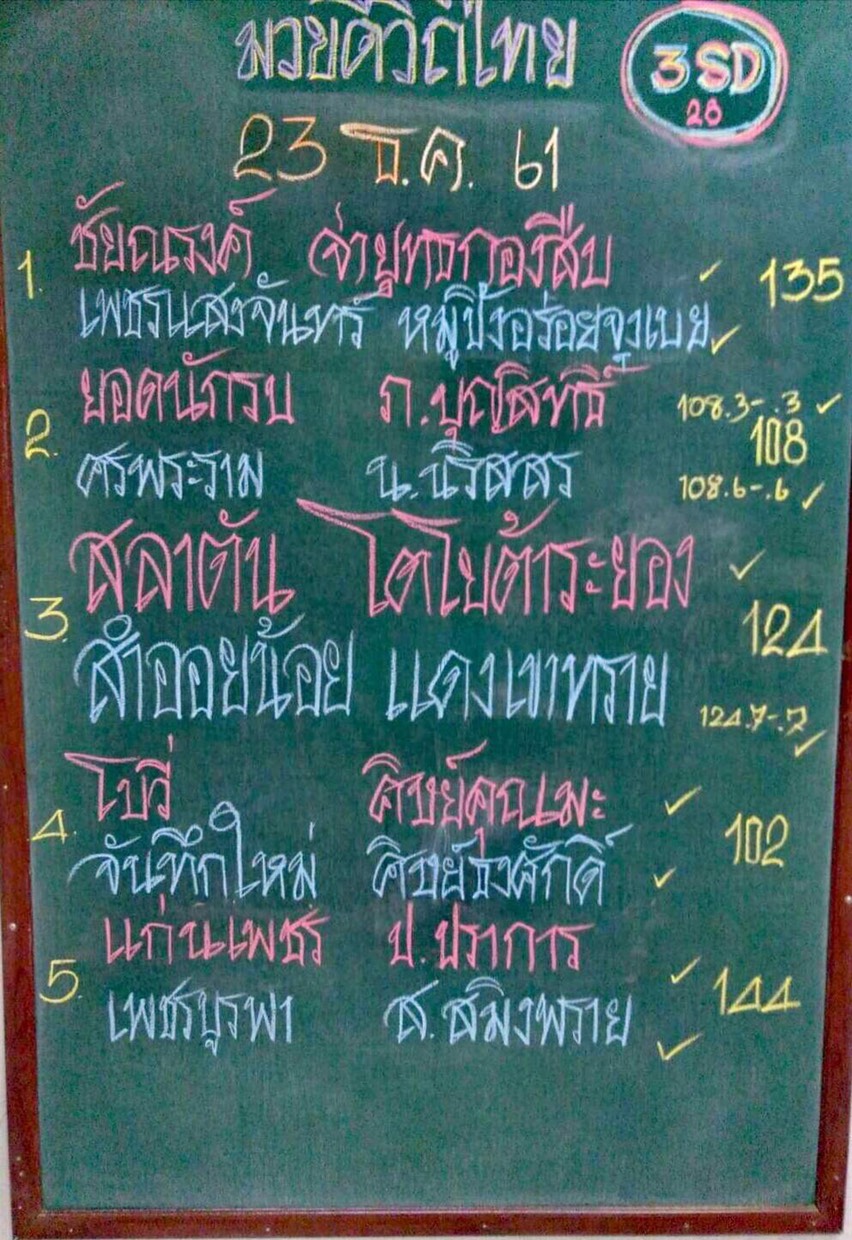 มวยดีวิถีไทย
3SD
28
23 ธ.ค. 61
1. ชัยณรงค์ จ่ายุทธกองสืบ ✓ 135
เพชรแสงจันทร์ หมูปิ้งอร่อยจุงเบย ✓
2. ยอดนักรบ ภ.บุญสิทธิ์ 108.3-.3 ✓
108
ศรพระราม น.นริสสร 108.6-.6 ✓
3. สลาตัน โตโยต้าระยอง ✓
124
ลำออยน้อย แดงเขาทราย 124.7-.7 ✓
4. โบวี่ ศิษย์คุณเมะ ✓
102
จันทึกใหม่ ศิษย์ธงศักดิ์ ✓
5. แก่นเพชร ป.ปราการ ✓
144
เพชรบูรพา ส.สมิงพราย ✓